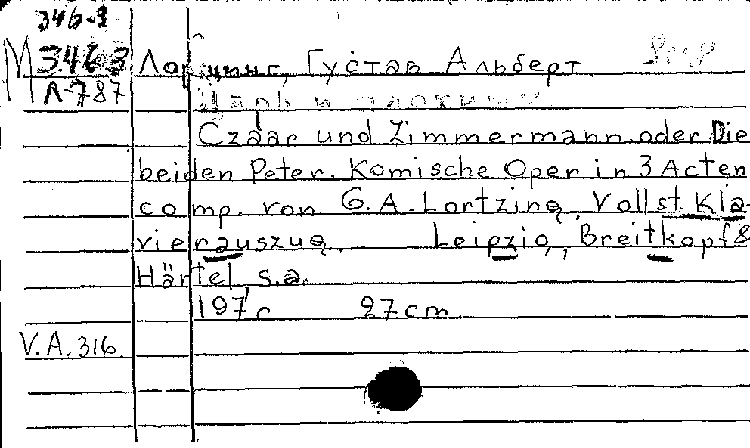 346-3
М 3463 Лорцинг, Густав Альберт.
Л-787 Царь и плотник
Czaar und Zimmermann oder Die
beiden Peter. Komische Oper in 3 Acten
comp. von G. A. Lortzing. Vollst. Kla-
vierauszug. Leipzig, Breitkopf &
Härtel, s.a.
197 с 27 cm
V.A. 316.